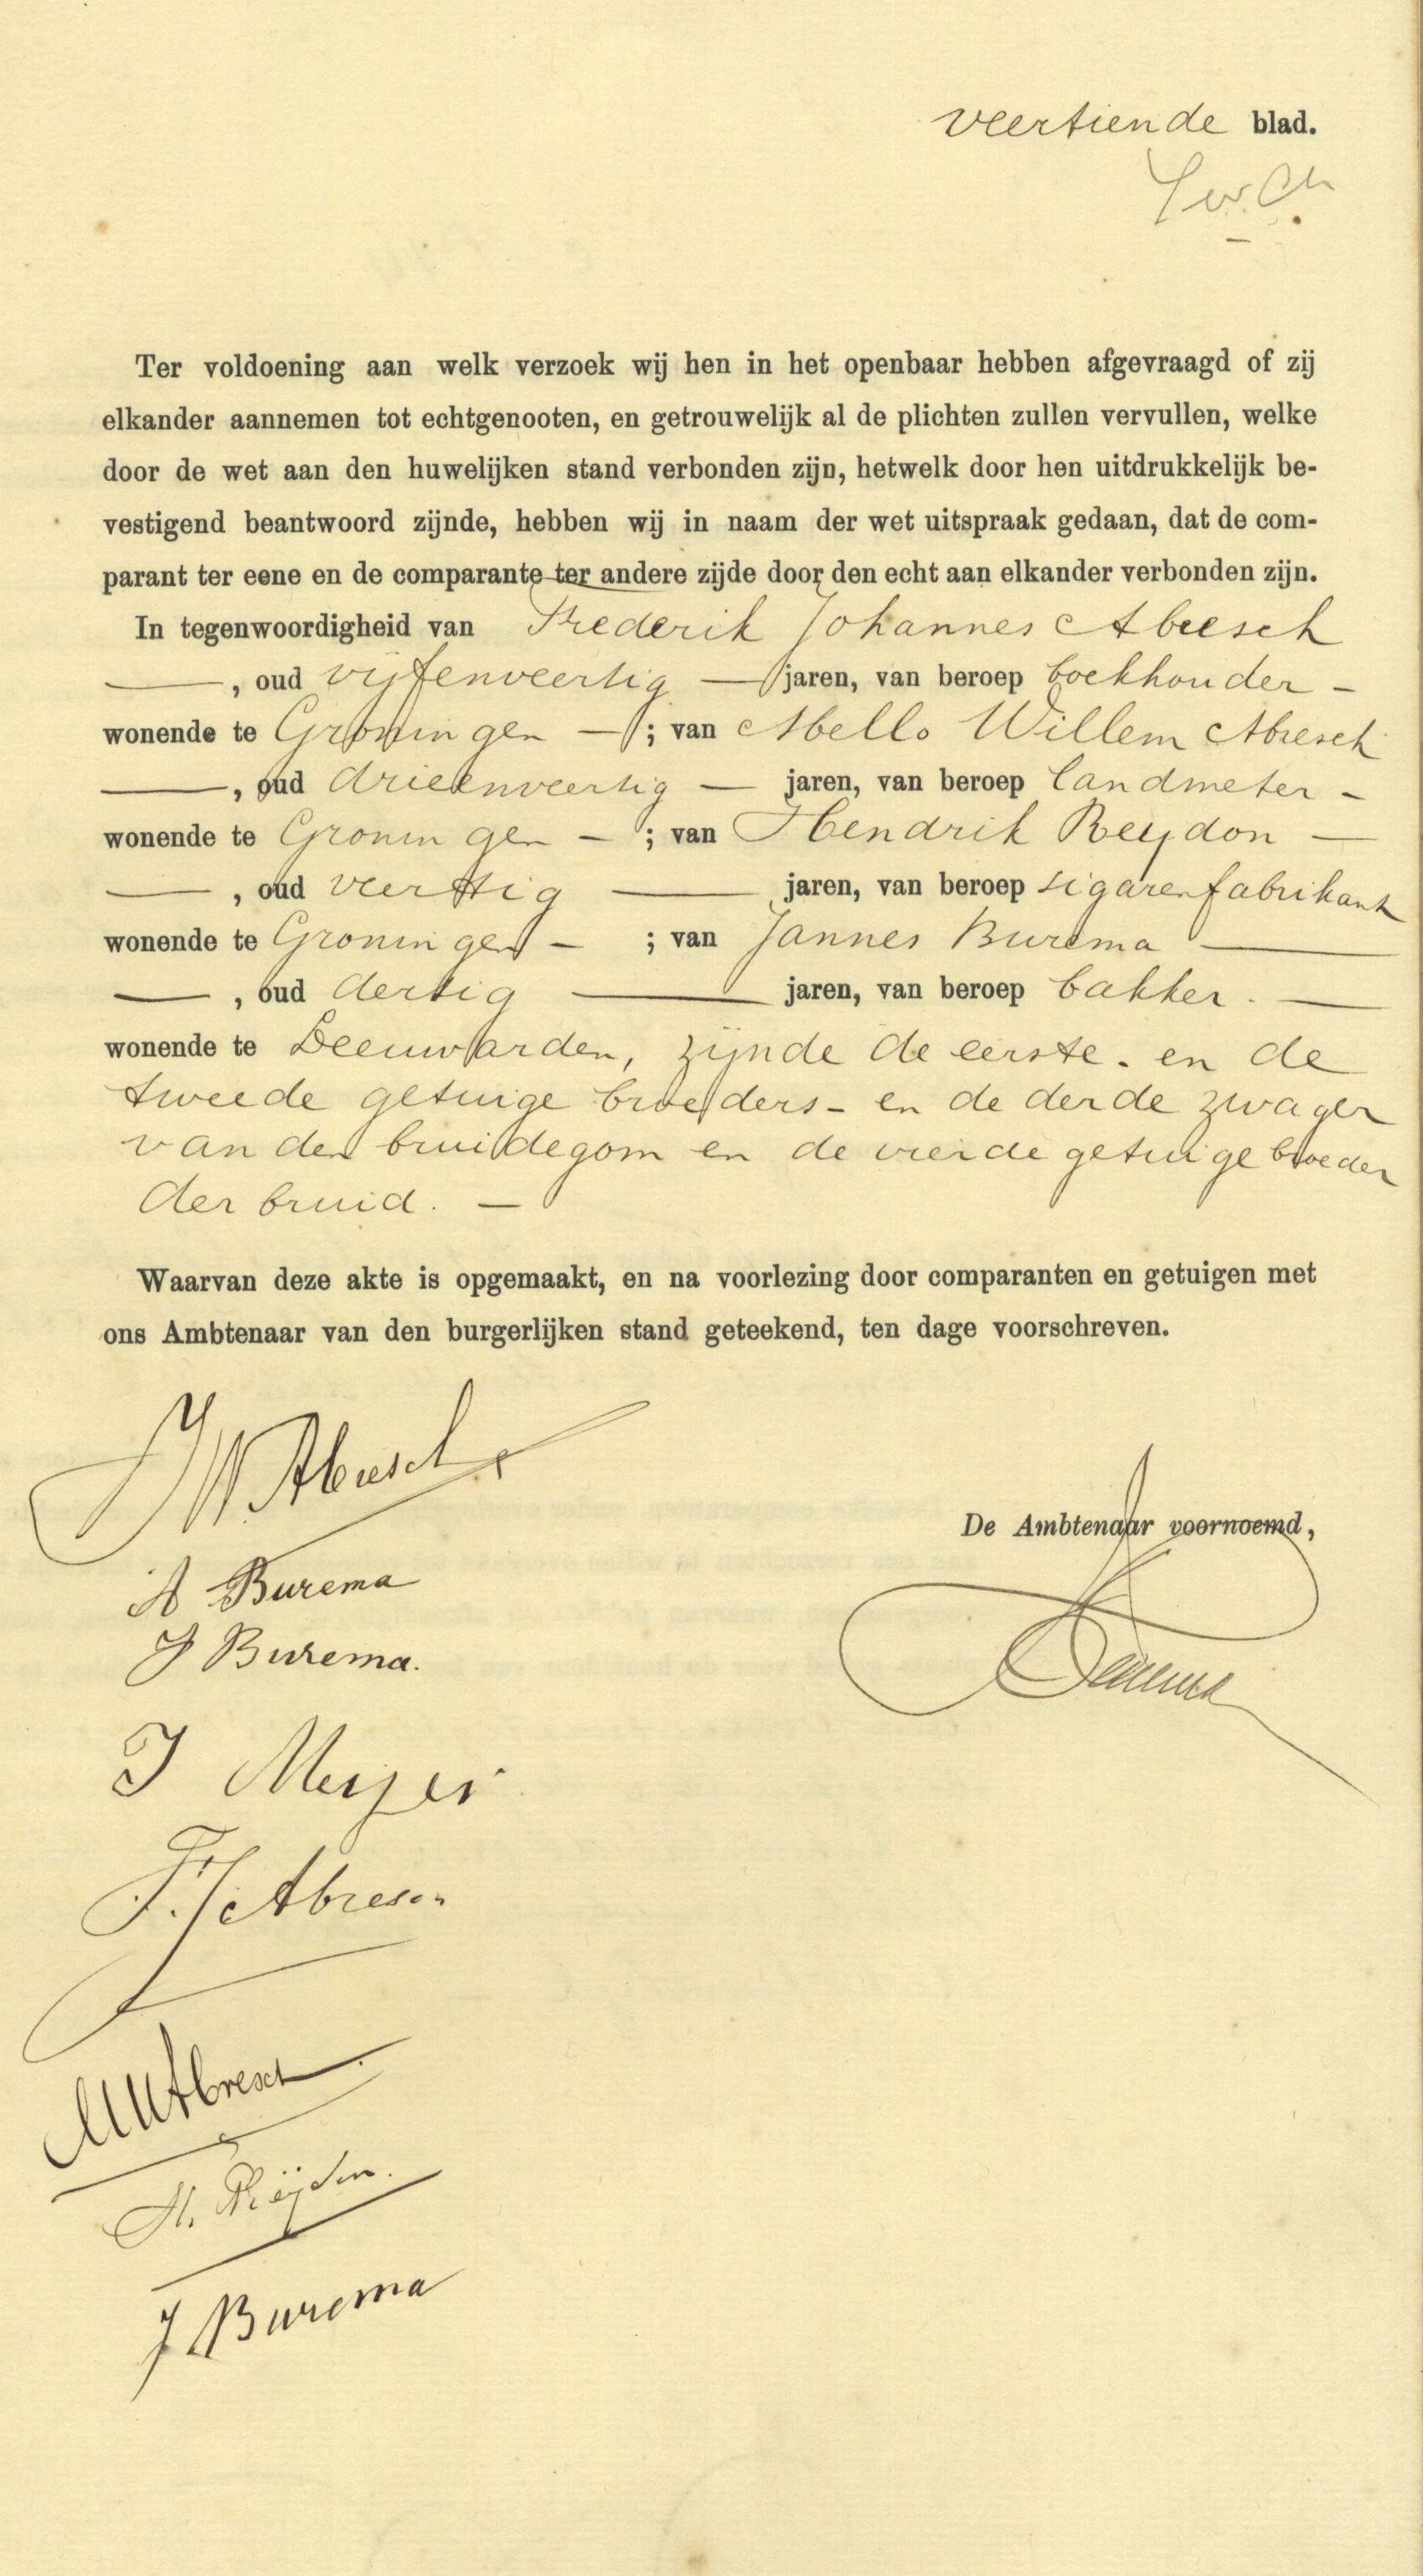 veertiende blad.
Ter voldoening aan welk verzoek wij hen in het openbaar hebben afgevraagd of zij
elkander aannemen tot echtgenooten, en getrouwelijk al de plichten zullen vervullen, welke
door de wet aan den huwelijken stand verbonden zijn, hetwelk door hen uitdrukkelijk be-
vestigend beantwoord zijnde, hebben wij in naam der wet uitspraak gedaan, dat de com-
parant ter eene en de comparante ter andere zijde door den echt aan elkander verbonden zijn.
In tegenwoordigheid van Frederik Johannes Abresch
—, oud vijfenveertig — jaren, van beroep boekhouder -
wonende te Groningen —; van Abello Willem Abresch
—, oud drieënveertig — jaren, van beroep landmeter -
wonende te Groningen -; van Hendrik Reydon —
—, oud veertig — jaren, van beroep sigarenfabrikant
wonende te Groningen - ; van Jannes Burema —
—, oud dertig — jaren, van beroep bakker. —
wonende te Leeuwarden, zijnde de eerste - en de
tweede getuige broeders - en de derde zwager
van den bruidegom en de vierde getuige broeder
der bruid. —
Waarvan deze akte is opgemaakt, en na voorlezing door comparanten en getuigen met
ons Ambtenaar van den burgerlijken stand geteekend, ten dage voorschreven.
JW Abresch
De Ambtenaar voornoemd,
A Burema
J Burema.
J Meijer
F. J Abresch
AW Abresch
H. Reijdon.
J Burema